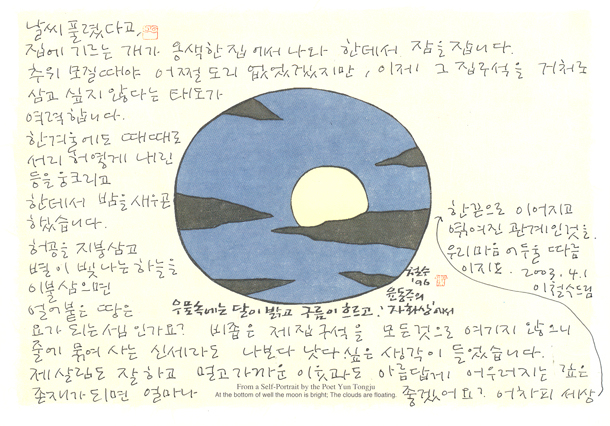 날씨 풀렸다고,
집에 기르는 개가 옹색한 집에서 나와 한데서 잠을 잡니다.
추위 모질때야 어쩔 도리 없었겠지만, 이제 그 집구석을 거처로
삼고 싶지 않다는 태도가
역력합니다.
한겨울에도 때때로
서리 허옇게 내린
등을 웅크리고
한데서 밤을 새우곤
하였습니다.
허공을 지붕삼고
별이 빛나는 하늘을
이불 삼으면
얼어붙은 땅은
요가 되는 셈인가요? 비좁은 제 집구석을 모든것으로 여기지 않으니
줄에 묶여 사는 신세라도 나보다 낫다 싶은 생각이 들었습니다.
제 살림도 잘하고 멀고 가까운 이웃과도 아름답게 어우러지는 깊은
존재가 되면 얼마나 좋겠어요? 어차피 세상
한끈으로 이어지고
엮여진 관계인것을.
우리마음 어두울 따름
이지요. 2003.4.1
이철수드림
철수
'96
우물속에는 달이 밝고 구름이 흐르고, 윤동주의 '자화상'에서
From a Self-Portrait by the Poet Yun Tongju
At the bottom of well the moon is bright; The clouds are floating.